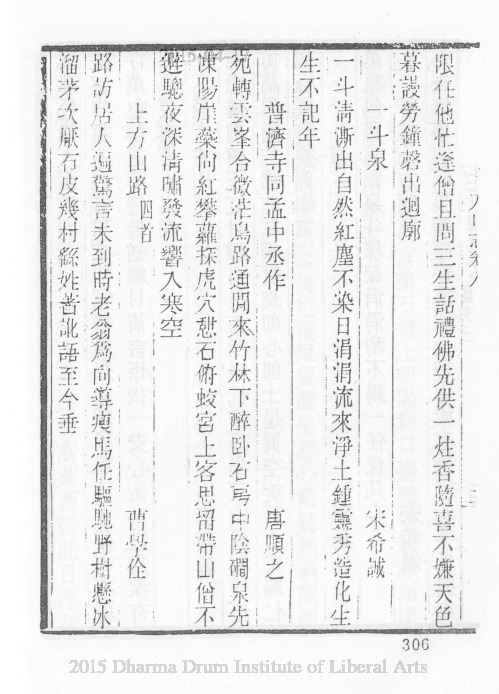 限任他忙逢僧且問三生話禮佛先供一炷香隨喜不嫌天色
暮謾勞鐘磬出迴廊
一斗泉 宋希誠
一斗淸澌出自然紅塵不染日涓涓流來淨土鍾靈秀造化生
生不記年
普濟寺同孟中丞作 唐順之
宛轉雲峯合微茫鳥路通閒來竹林下醉卧石房中陰磵泉先
凍陽崖藥尙紅攀蘿探虎穴憇石俯蛟宮上客思留帶山僧不
避驄夜深淸嘯發流響入寒空
上方山路 四首 曹學佺
路訪居人遍驚言未到時老翁爲向導瘦馬任驅馳野樹懸冰
溜茅次厭石皮幾村繇姓著訛語至今垂
306
2015 Dharma Drum Institute of Liberal Arts